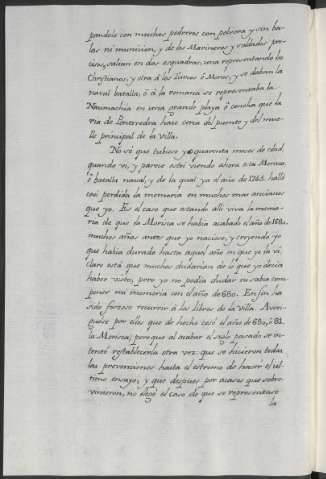 pandola con muchos pedreros con polvora y sin ba-
las ni municion, y de los Marineros y soldados pre-
cisos, salian en dos esquadras, una representando los
Christianos, y otra á los Turcos ó Moros, y se daban la
naval batalla; ó á la romana se representaba la
Naumachia en una grande playa ó concha que la
ria de Pontevedra hace cerca del puente y del mue-
lle principal de la Villa.
No sé que tubiese yo quarenta meses de edad,
quando vi, y parece estoi viendo ahora esta Morisca
ó batalla naval, y de la qual ya el año de 1725. hallé
casi perdida la memoria en muchos mas ancianos
que yo. Es el caso que estando allí viva la memo-
ria de que la Morisca se habia acabado el año de
muchos años antes que yo naciese, y oyendo yo
que habia durado hasta aquel año en que yo la vi,
claro está que muchos dudarian de lo que yo decia
haber visto, pero yo no podia dudar ni sabia com-
poner mi memoria con el año de 680. En fin ha
sido forzoso recurrir á los libros de la Villa. Averi-
guóse por ellos que de hecho cesó el año de 680, ó 81.
la Morisca; pero que al acabar el siglo pasado se in-
tentó restablecerla otra vez, que se hicieron todas
las prevenciones hasta el extremo de hacer el ul-
timo ensayo, y que despues por acasos que sobre-
vinieron, no llegó el caso de que se representase
la